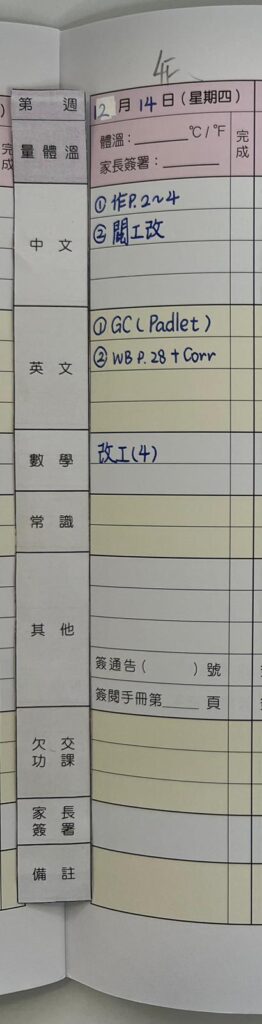 第 週
12月14日(星期四)
量體溫
體溫:______℃/℉
家長簽署:______
完成
中文
①作P.2~4
②閱工改
英文
①GC(Padlet)
②WB P.28+Corr
數學
改工(4)
常識
其他
簽通告( )號
簽閱手冊第____頁
欠交功課
家長簽署
備註